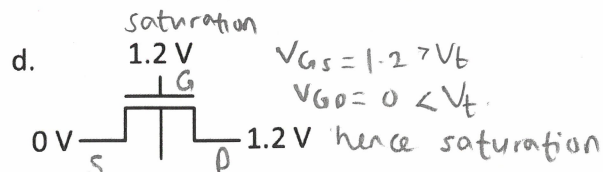 saturation
d. 1.2 V VGS = 1.2 > Vt
G VGD = 0 < Vt.
0 V 1.2 V hence saturation
S D